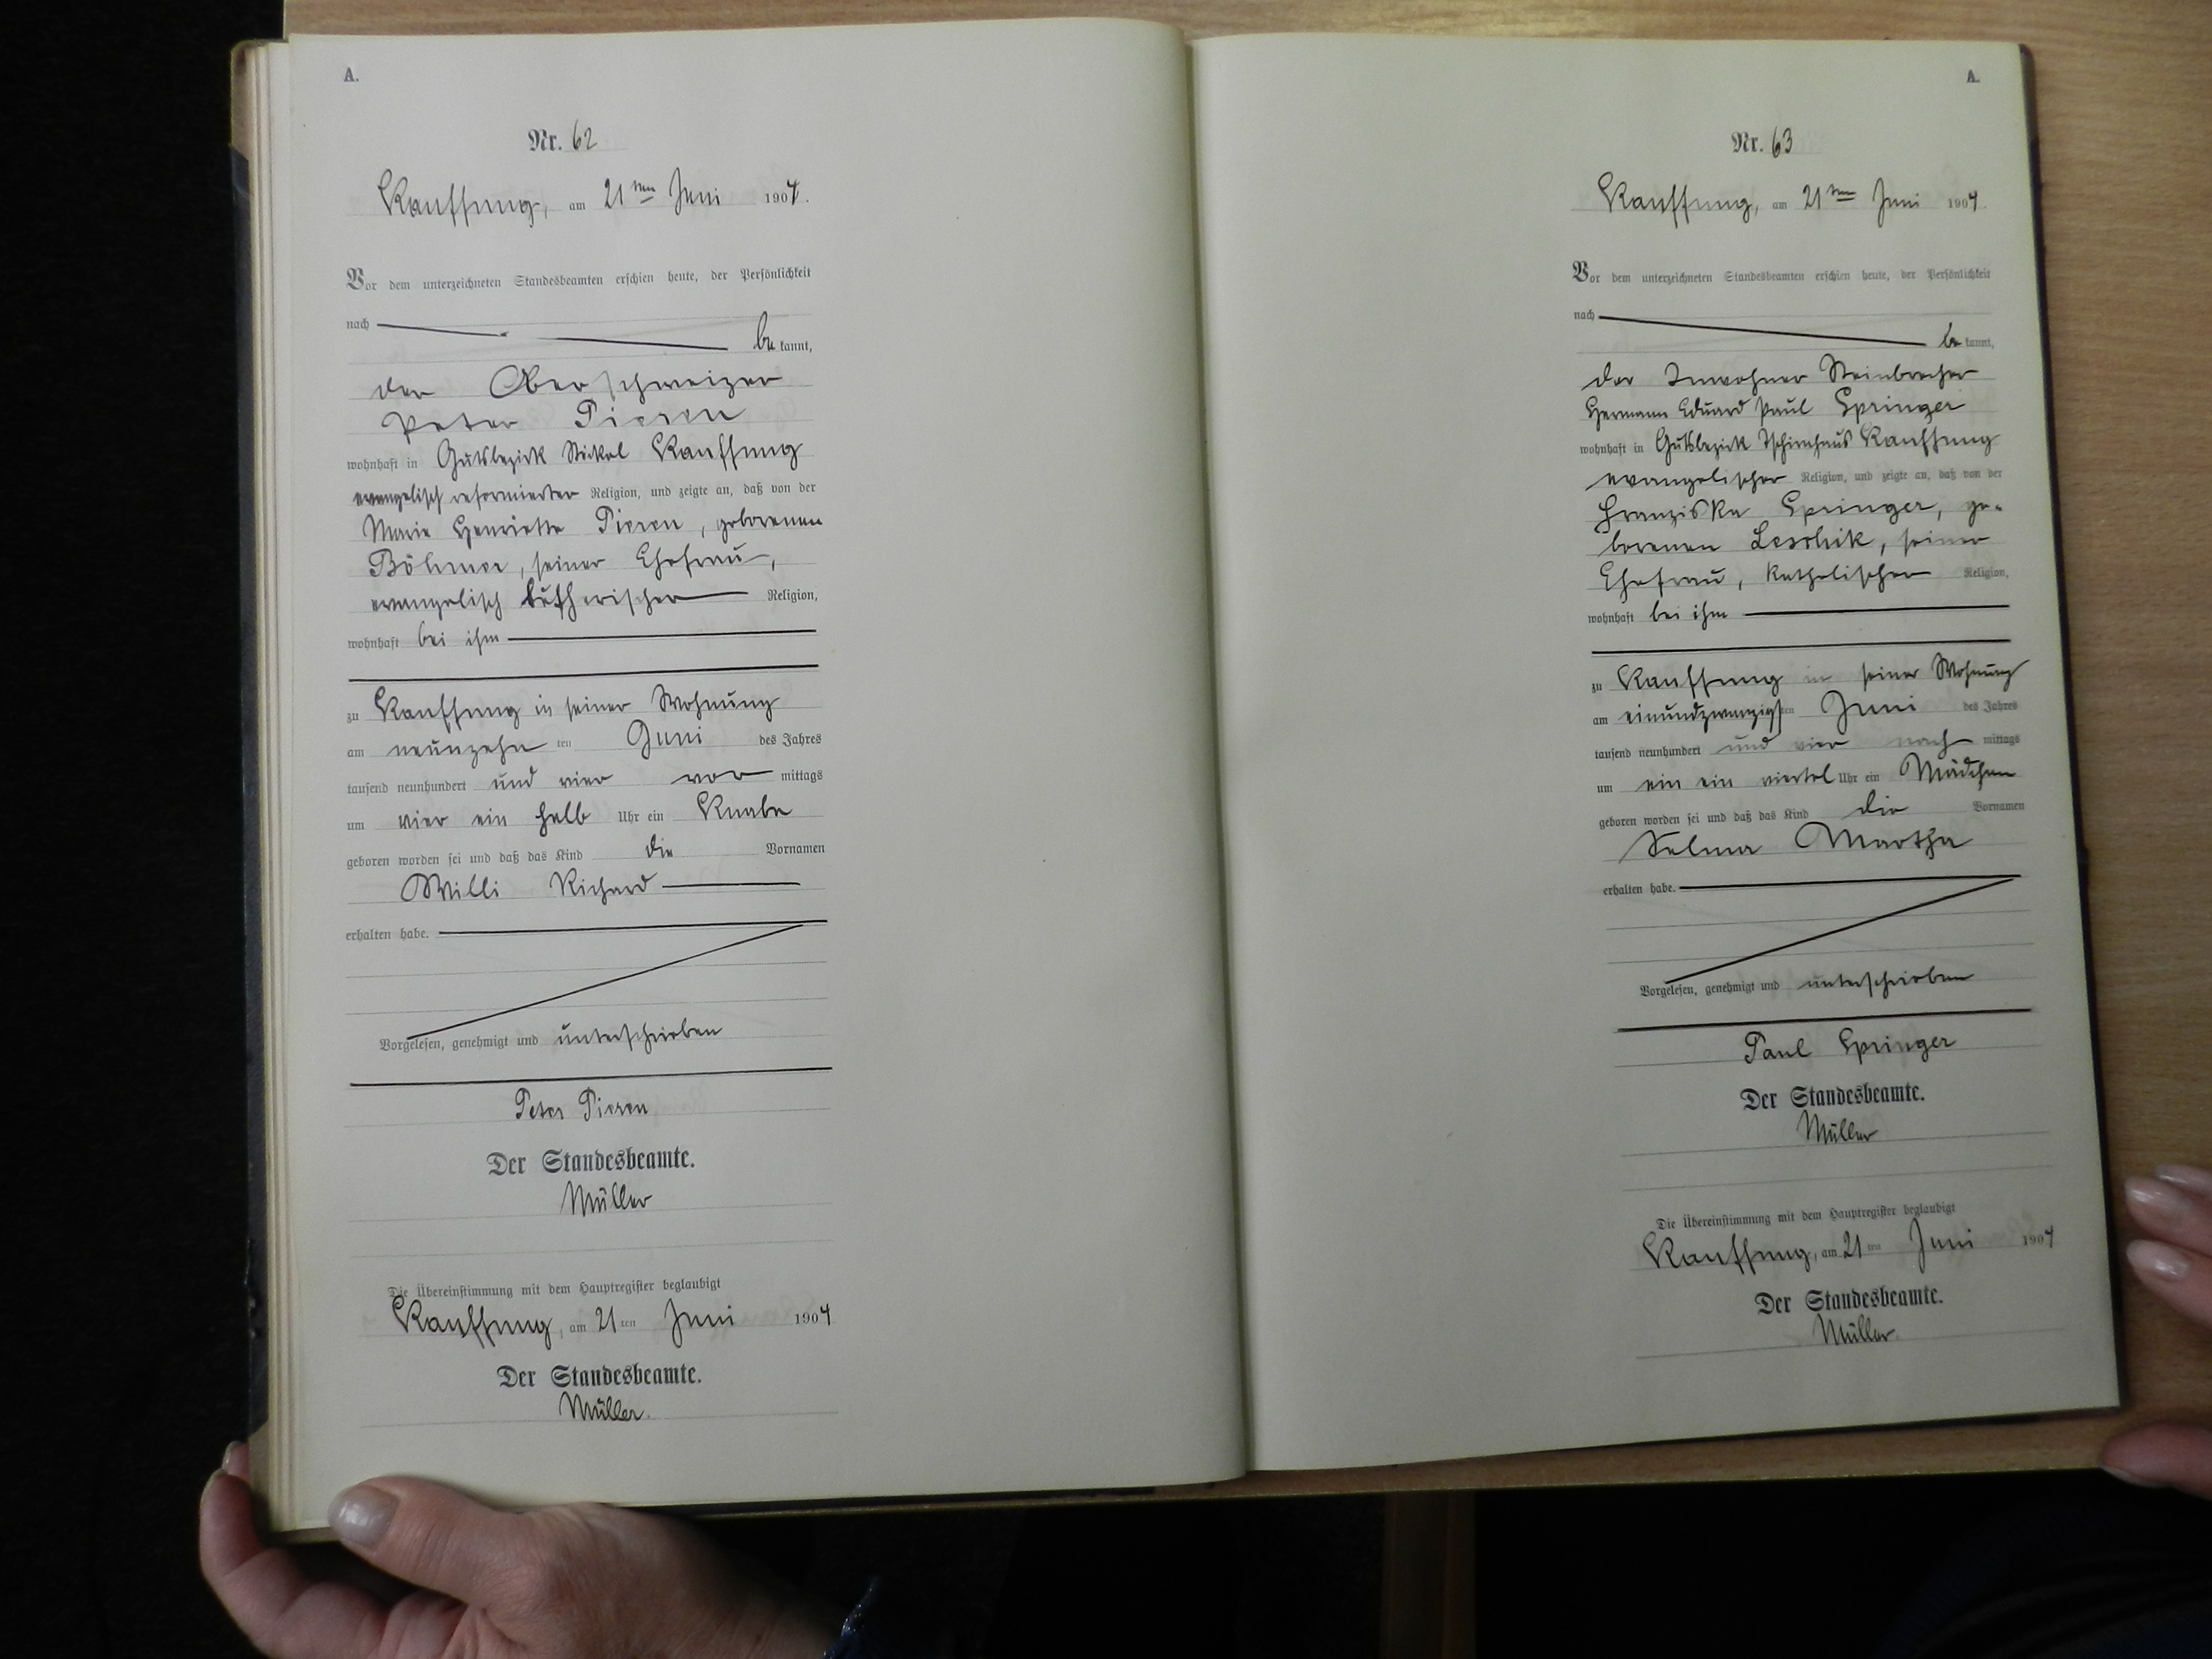 A.
Nr. 62
Kauffung, am 21ten Juni 1904.
Vor dem unterzeichneten Standesbeamten erschien heute, der Persönlichkeit
nach
be kannt,
der Oberschweizer
Peter Pieren
wohnhaft in Gutsbezirk Stöckel Kauffung
evangelisch reformierter Religion, und zeigte an, daß von der
Marie Henriette Pieren, geborenen
Böhmer, seiner Ehefrau,
evangelisch lutherischer Religion,
wohnhaft bei ihm
zu Kauffung in seiner Wohnung
am neunzehn ten Juni des Jahres
tausend neunhundert und vier vor mittags
um vier ein halb Uhr ein Knabe
geboren worden sei und daß das Kind die Vornamen
Willi Richard
erhalten habe.
Vorgelesen, genehmigt und unterschrieben
Peter Pieren
Der Standesbeamte.
Müller
Die Übereinstimmung mit dem Hauptregister beglaubigt
Kauffung, am 21 ten Juni 1904
Der Standesbeamte.
Müller.
A.
Nr. 63
Kauffung, am 21ten Juni 1904.
Vor dem unterzeichneten Standesbeamten erschien heute, der Persönlichkeit
nach
be kannt,
der Inwohner Steinbrecher
Hermann Eduard Paul Springer
wohnhaft in Gutsbezirk Tschirnhaus Kauffung
evangelischer Religion, und zeigte an, daß von der
Franziska Springer, ge-
borenen Leschik, seiner
Ehefrau, katholischer Religion,
wohnhaft bei ihm
zu Kauffung in seiner Wohnung
am einundzwanzigsten Juni des Jahres
tausend neunhundert und vier nach mittags
um ein ein viertel Uhr ein Mädchen
geboren worden sei und daß das Kind die Vornamen
Selma Martha
erhalten habe.
Vorgelesen, genehmigt und unterschrieben
Paul Springer
Der Standesbeamte.
Müller
Die Übereinstimmung mit dem Hauptregister beglaubigt
Kauffung, am 21 ten Juni 1904
Der Standesbeamte.
Müller.